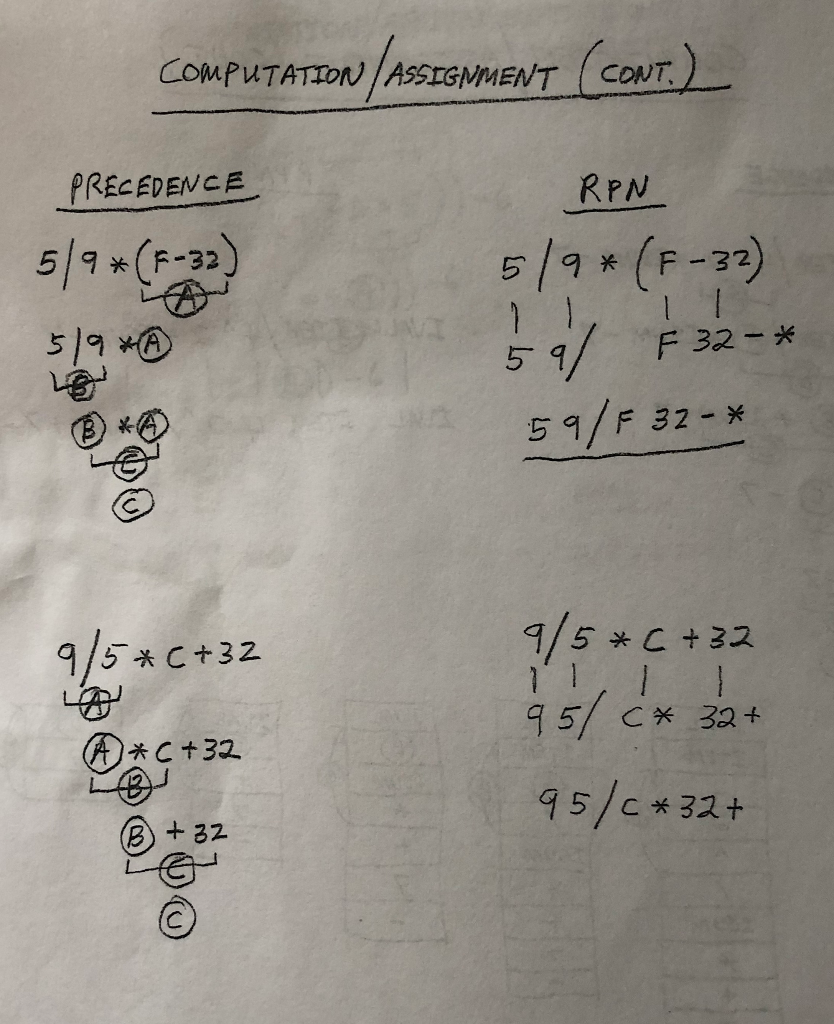 COMPUTATION/ASSIGNMENT (CONT.)
PRECEDENCE
5/9*(F-32)
A
5/9*A
B
B*A
C
C
9/5*C+32
A
A*C+32
B
B+32
C
C
RPN
5/9*(F-32)
5 9/ F 32-*
5 9/F 32-*
9/5*C+32
9 5/ C* 32+
9 5/C*32+